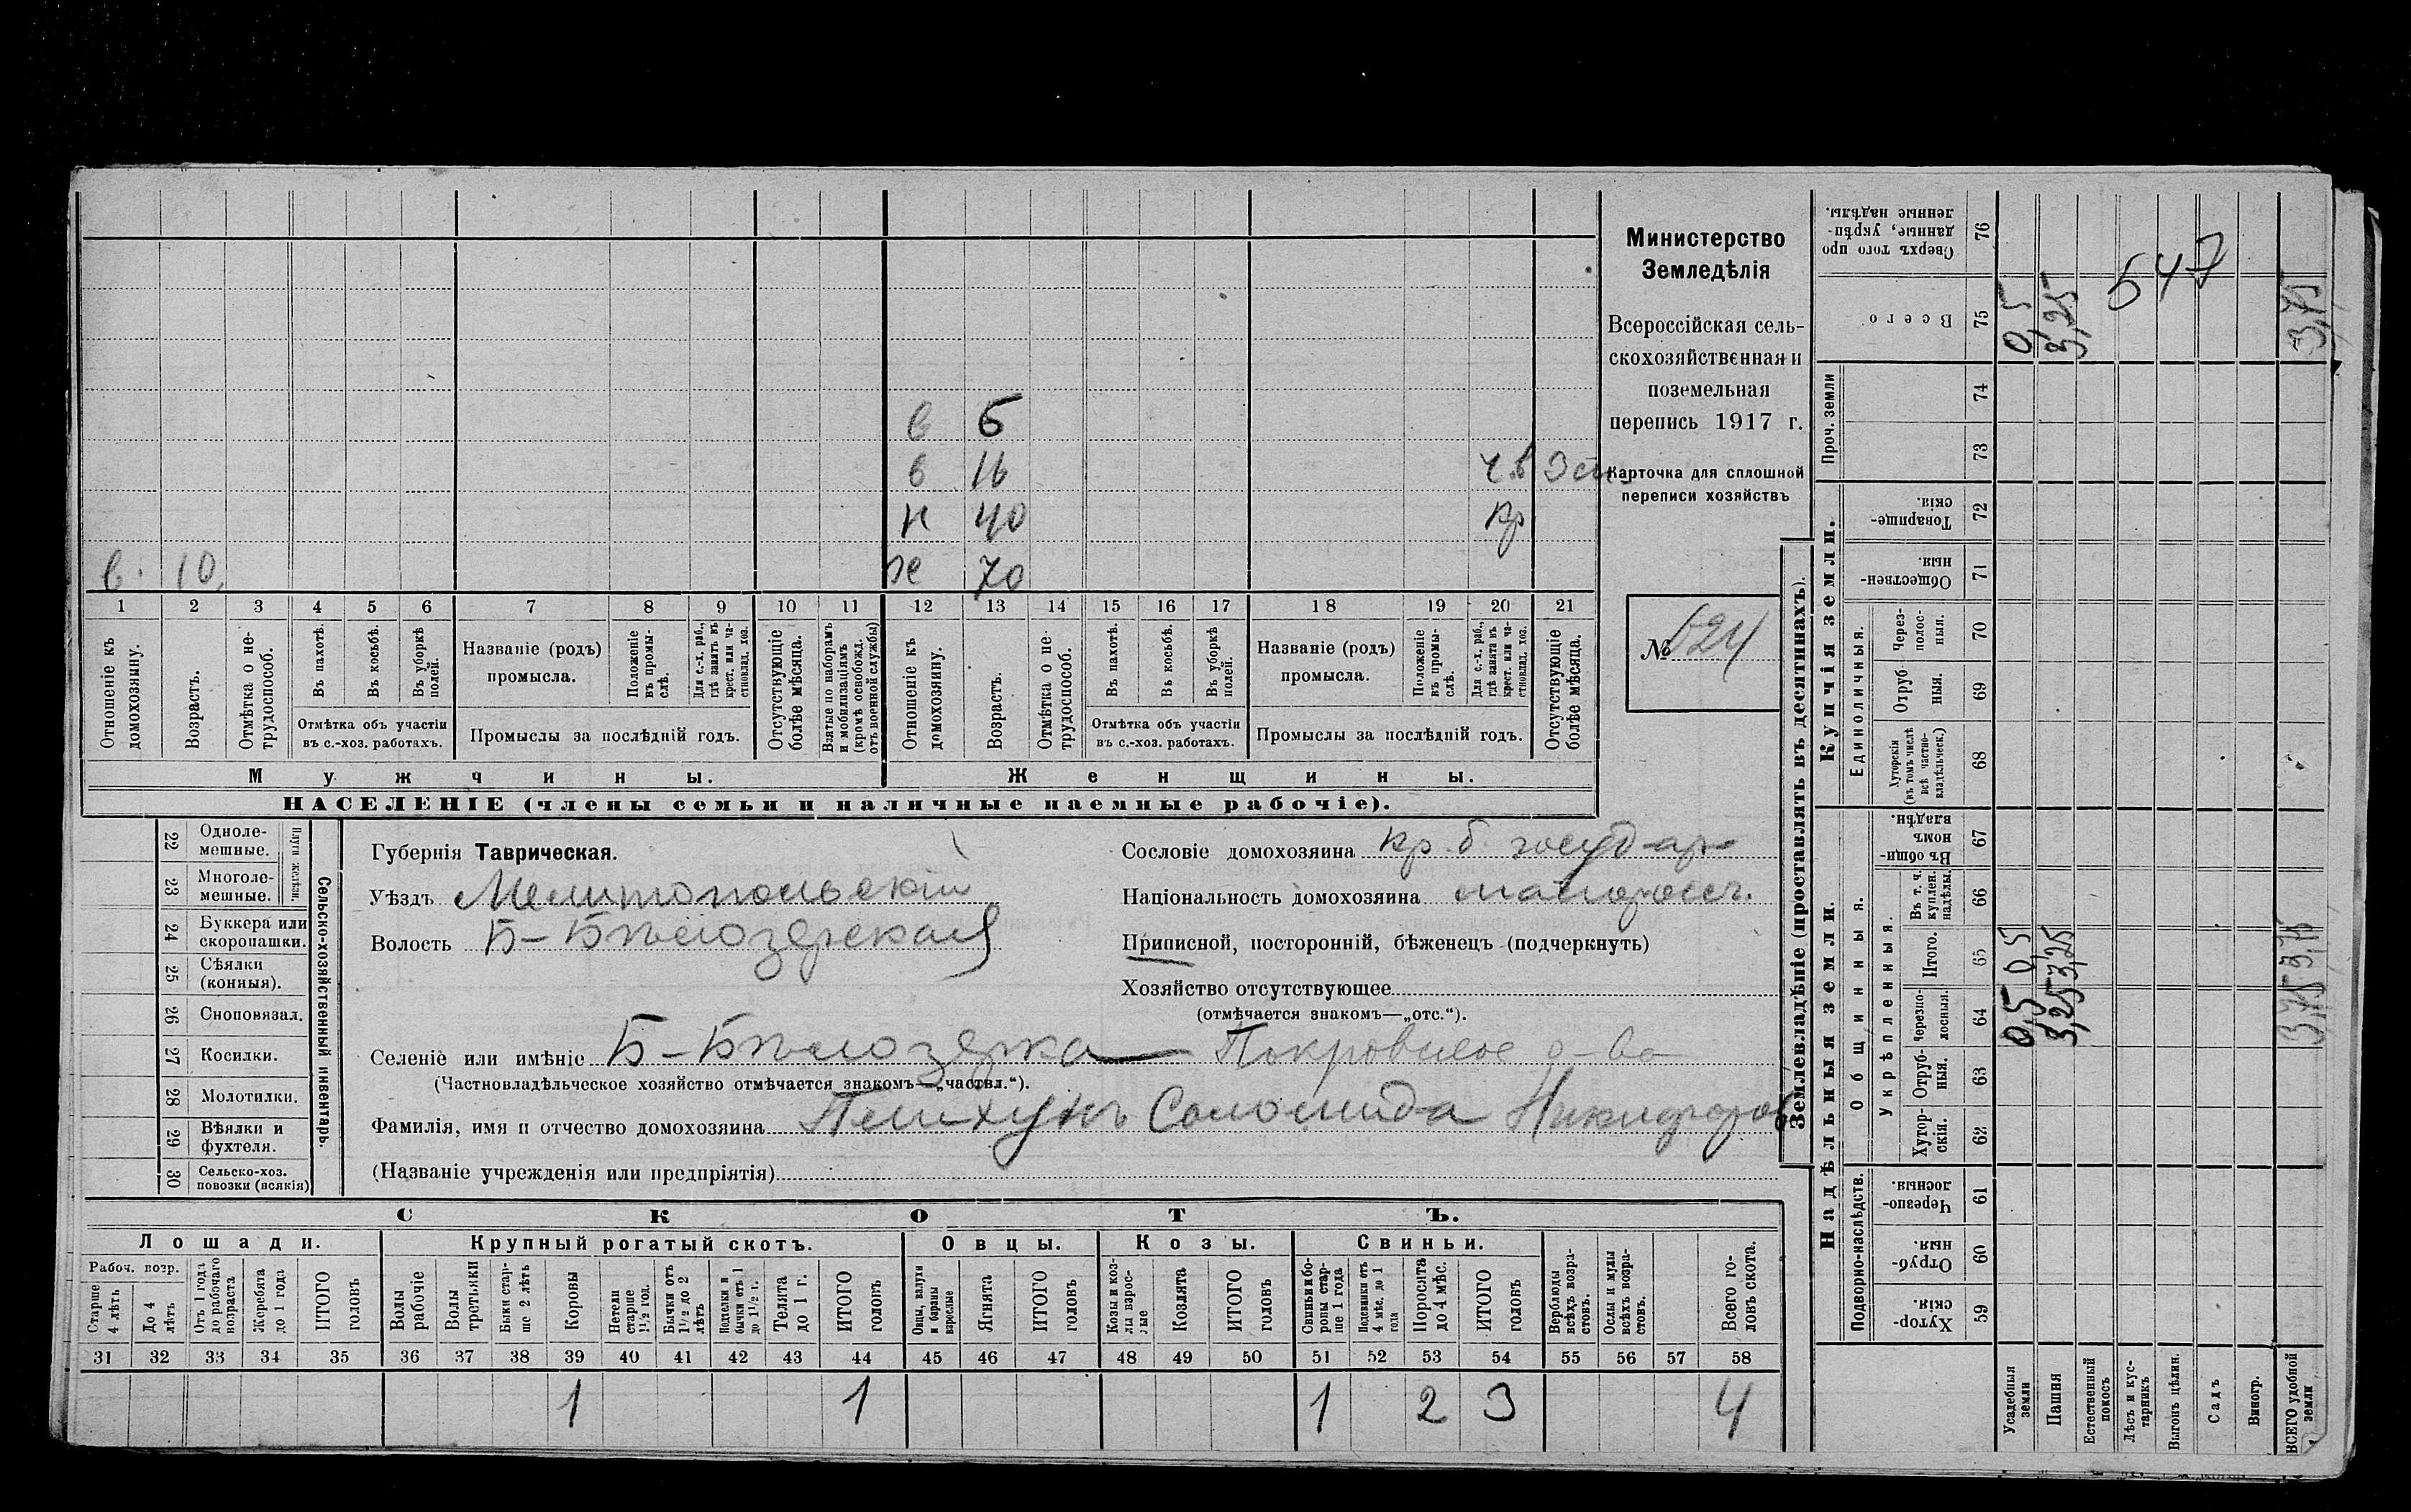 Министерство
Земледѣлія
Всероссійская сель-
скохозяйственная и
поземельная
перепись 1917 г.
Карточка для сплошной
переписи хозяйствъ
№ 624
в 6
в 16
н 40 кр
в. 10. ж 70
1 2 3 4 5 6 7 8 9 10 11 12 13 14 15 16 17 18 19 20 21
Отношеніе къ домохозяину.
Возрастъ.
Отмѣтка о не-трудоспособ.
Въ пахотѣ.
Въ косьбѣ.
Въ уборкѣ полей.
Отмѣтка объ участіи
въ с.-хоз. работахъ.
Названіе (родъ)
промысла.
Положеніе въ промы-слѣ.
Для с.-х. раб., гдѣ занятъ въ крест. или ча-стновлад. хоз.
Промыслы за послѣдній годъ.
Отсутствующіе болѣе мѣсяца.
Взятые по наборамъ и мобилизаціямъ (кромѣ освобожд. отъ военной службы)
Отношеніе къ домохозяину.
Возрастъ.
Отмѣтка о не-трудоспособ.
Въ пахотѣ.
Въ косьбѣ.
Въ уборкѣ полей.
Отмѣтка объ участіи
въ с.-хоз. работахъ.
Названіе (родъ)
промысла.
Положеніе въ промы-слѣ.
Для с.-х. раб., гдѣ занята въ крест. или ча-стновлад. хоз.
Промыслы за послѣдній годъ.
Отсутствующіе болѣе мѣсяца.
Мужчины. Женщины.
НАСЕЛЕНІЕ (члены семьи и наличные наемные рабочіе).
Сельско-хозяйственный инвентарь.
Плуги желѣзн.
22 Одноле-мешные.
23 Многоле-мешные.
24 Буккера или скоропашки.
25 Сѣялки (конныя).
26 Сноповязал.
27 Косилки.
28 Молотилки.
29 Вѣялки и фухтеля.
30 Сельско-хоз. повозки (всякія)
Губернія Таврическая.
Уѣздъ Мелитопольскій
Волость Б-Бѣлозерская
Сословіе домохозяина кр. б. государ
Національность домохозяина малоросс.
Приписной, посторонній, бѣженецъ (подчеркнуть)
Хозяйство отсутствующее
(отмѣчается знакомъ—„отс.“).
Селеніе или имѣніе Б-Бѣлозерка Покровское о-во
(Частновладѣльческое хозяйство отмѣчается знакомъ—„частвл.“).
Фамилія, имя и отчество домохозяина Соломида Никифоров
(Названіе учрежденія или предпріятія)
СКОТЪ.
Лошади. Крупный рогатый скотъ. Овцы. Козы. Свиньи.
Рабоч. возр.
Старше 4 лѣтъ
До 4 лѣтъ
Отъ 1 года до рабочаго возраста
Жеребята до 1 года
ИТОГО головъ
Волы рабочіе
Волы третьяки
Быки стар-ше 2 лѣтъ
Коровы
Нетели старше 1½ год.
Бычки отъ 1½ до 2 лѣтъ
Подтелки и бычки отъ 1 до 1½ г.
Телята до 1 г.
ИТОГО головъ
Овцы, валухи и бараны взрослые
Ягнята
ИТОГО головъ
Козы и коз-лы взрос-лые
Козлята
ИТОГО головъ
Свиньи и бо-ровы стар-ше 1 года
Подсвинки отъ 4 мѣс. до 1 года
Поросята до 4 мѣс.
ИТОГО головъ
Верблюды всѣхъ возра-стовъ.
Ослы и мулы всѣхъ возра-стовъ.
Всего го-ловъ скота.
31 32 33 34 35 36 37 38 39 40 41 42 43 44 45 46 47 48 49 50 51 52 53 54 55 56 57 58
1 1 1 2 3 4
Землевладѣніе (проставлять въ десятинахъ).
Купчія земли.
Надѣльныя земли.
Сверхъ того про данные, укрѣп-ленные надѣлы. 76
Всего 75 0,5 3,25 3,75
547
Проч. земли 74 73
Товарище-скія. 72
Обществен-ныя. 71
Единоличныя.
Через-полос-ныя. 70
Отруб-ныя. 69
Хуторскія (въ томъ числѣ всѣ частно-владѣльческ.) 68
Общинныя.
Въ общи-номъ владѣн. 67
Укрѣпленныя.
Въ т. ч. куплен. надѣлы. 66
Итого. 65 0,5 3,25 3,75
Черезпо-лосныя. 64 0,5 3,25 3,75
Отруб-ныя. 63
Хутор-скія. 62
Подворно-наслѣдств.
Черезпо-лосныя. 61
Отруб-ныя. 60
Хутор-скія. 59
Усадебныя земли
Пашня
Естественный покосъ
Лѣсъ и кус-тарникъ
Выгонъ цѣлин.
Садъ
Виногр.
ВСЕГО удобной земли